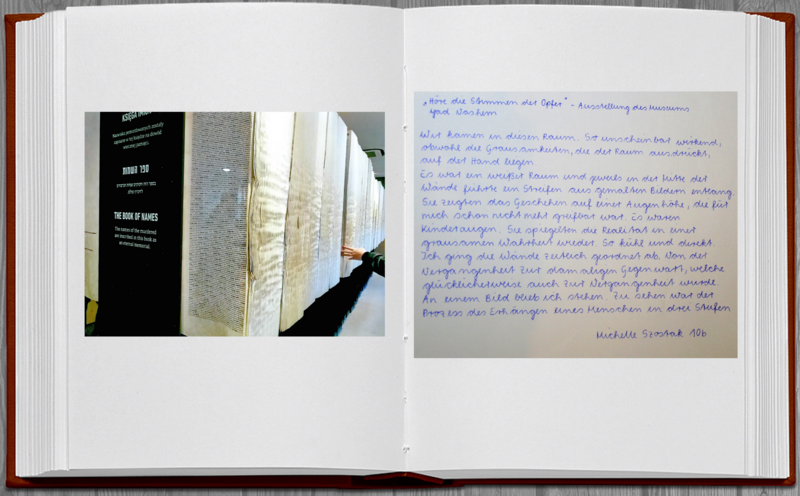 KSIĘGA IMION
Nazwiska pomordowanych zostały
zapisane w tej księdze na dowód
wiecznej pamięci.
ספר השמות
THE BOOK OF NAMES
The names of the murdered
are inscribed in this book as
an eternal memorial.
„Höre die Stimmen der Opfer" - Ausstellung des Museums
Yad Vashem
Wir kamen in diesen Raum. So unscheinbar wirkend,
obwohl die Grausamkeiten, die der Raum ausdrückt,
auf der Hand liegen.
Es war ein weißer Raum und jeweils in der Mitte der
Wände führte ein Streifen aus gemalten Bildern entlang.
Sie zeigten das Geschehen auf einer Augenhöhe, die für
mich schon nicht mehr greifbar war. Es waren
Kinderaugen. Sie spiegelten die Realität in einer
grausamen Wahrheit wieder. So kühl und direkt.
Ich ging die Wände zeitlich geordnet ab. Von der
Vergangenheit zur damaligen Gegenwart, welche
glücklicherweise auch zur Vergangenheit wurde.
An einem Bild blieb ich stehen. Zu sehen war der
Prozess des Erhängen eines Menschen in drei Stufen
Michelle Szostak 10b.